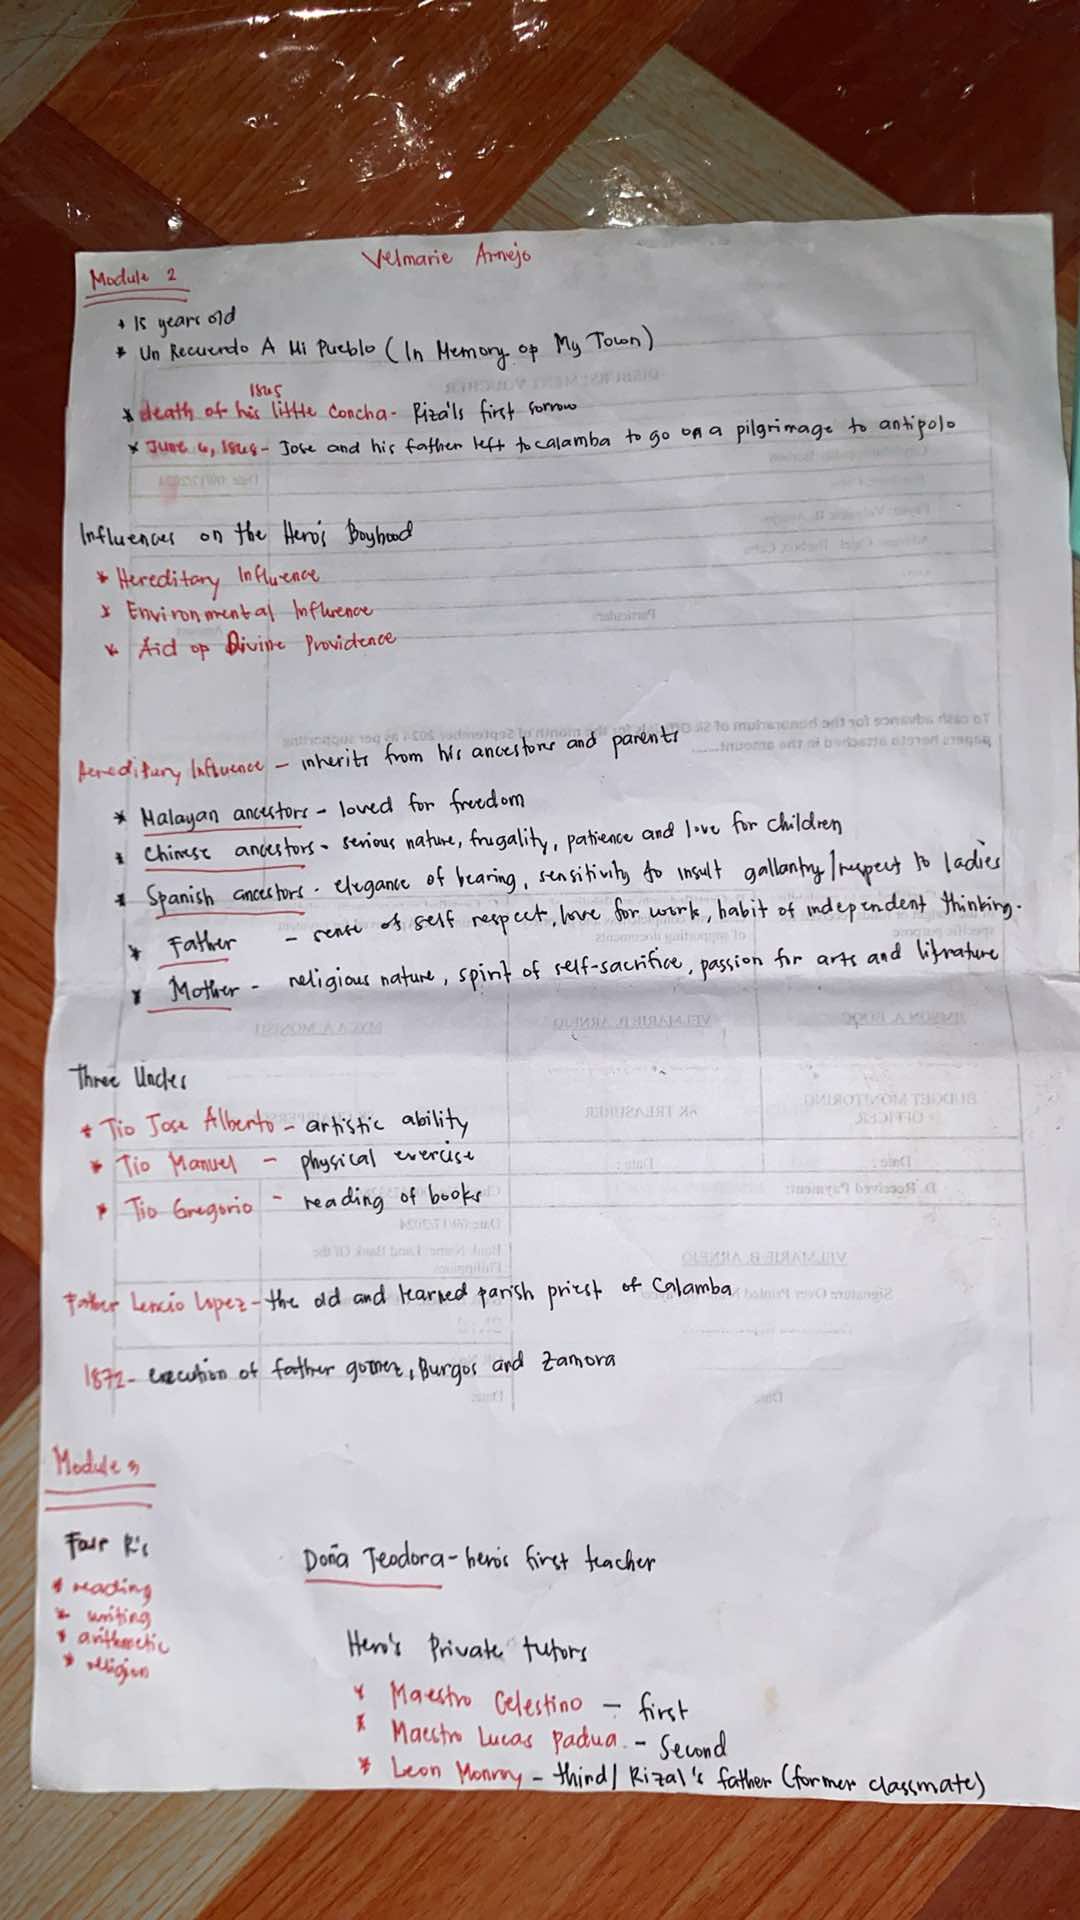 Velmarie Arnejo
Module 2
* 15 years old
* Un Recuerdo A Mi Pueblo (In Memory op My Town)
1865
* death of his little Concha - Rizal's first sorrow
* June 6, 1868 - Jose and his father left to calamba to go on a pilgrimage to antipolo
Influences on the Hero's Boyhood
* Hereditary Influence
* Environmental Influence
* Aid op Divine Providence
Hereditary Influence - inherits from his ancestors and parents
* Malayan ancestors - loved for freedom
* Chinese ancestors - serious nature, frugality, patience and love for children
* Spanish ancestors - elegance of bearing, sensitivity to insult gallantry/respect to ladies
* Father - sense of self respect, love for work, habit of independent thinking.
* Mother - religious nature, spirit of self-sacrifice, passion for arts and litrature
Three Uncles
* Tio Jose Alberto - artistic ability
* Tio Manuel - physical exercise
* Tio Gregorio - reading of books
Father Lencio Lopez - the old and learned parish priest of Calamba
1872 - execution of father gomez, Burgos and Zamora
Module 3
Four R's
* reading
* writing
* arithmetic
* religion
Doña Teodora - hero's first teacher
Hero's Private tutors
* Maestro Celestino - first
* Maestro Lucas Padua - Second
* Leon Monroy - third/ Rizal's father (former classmate)